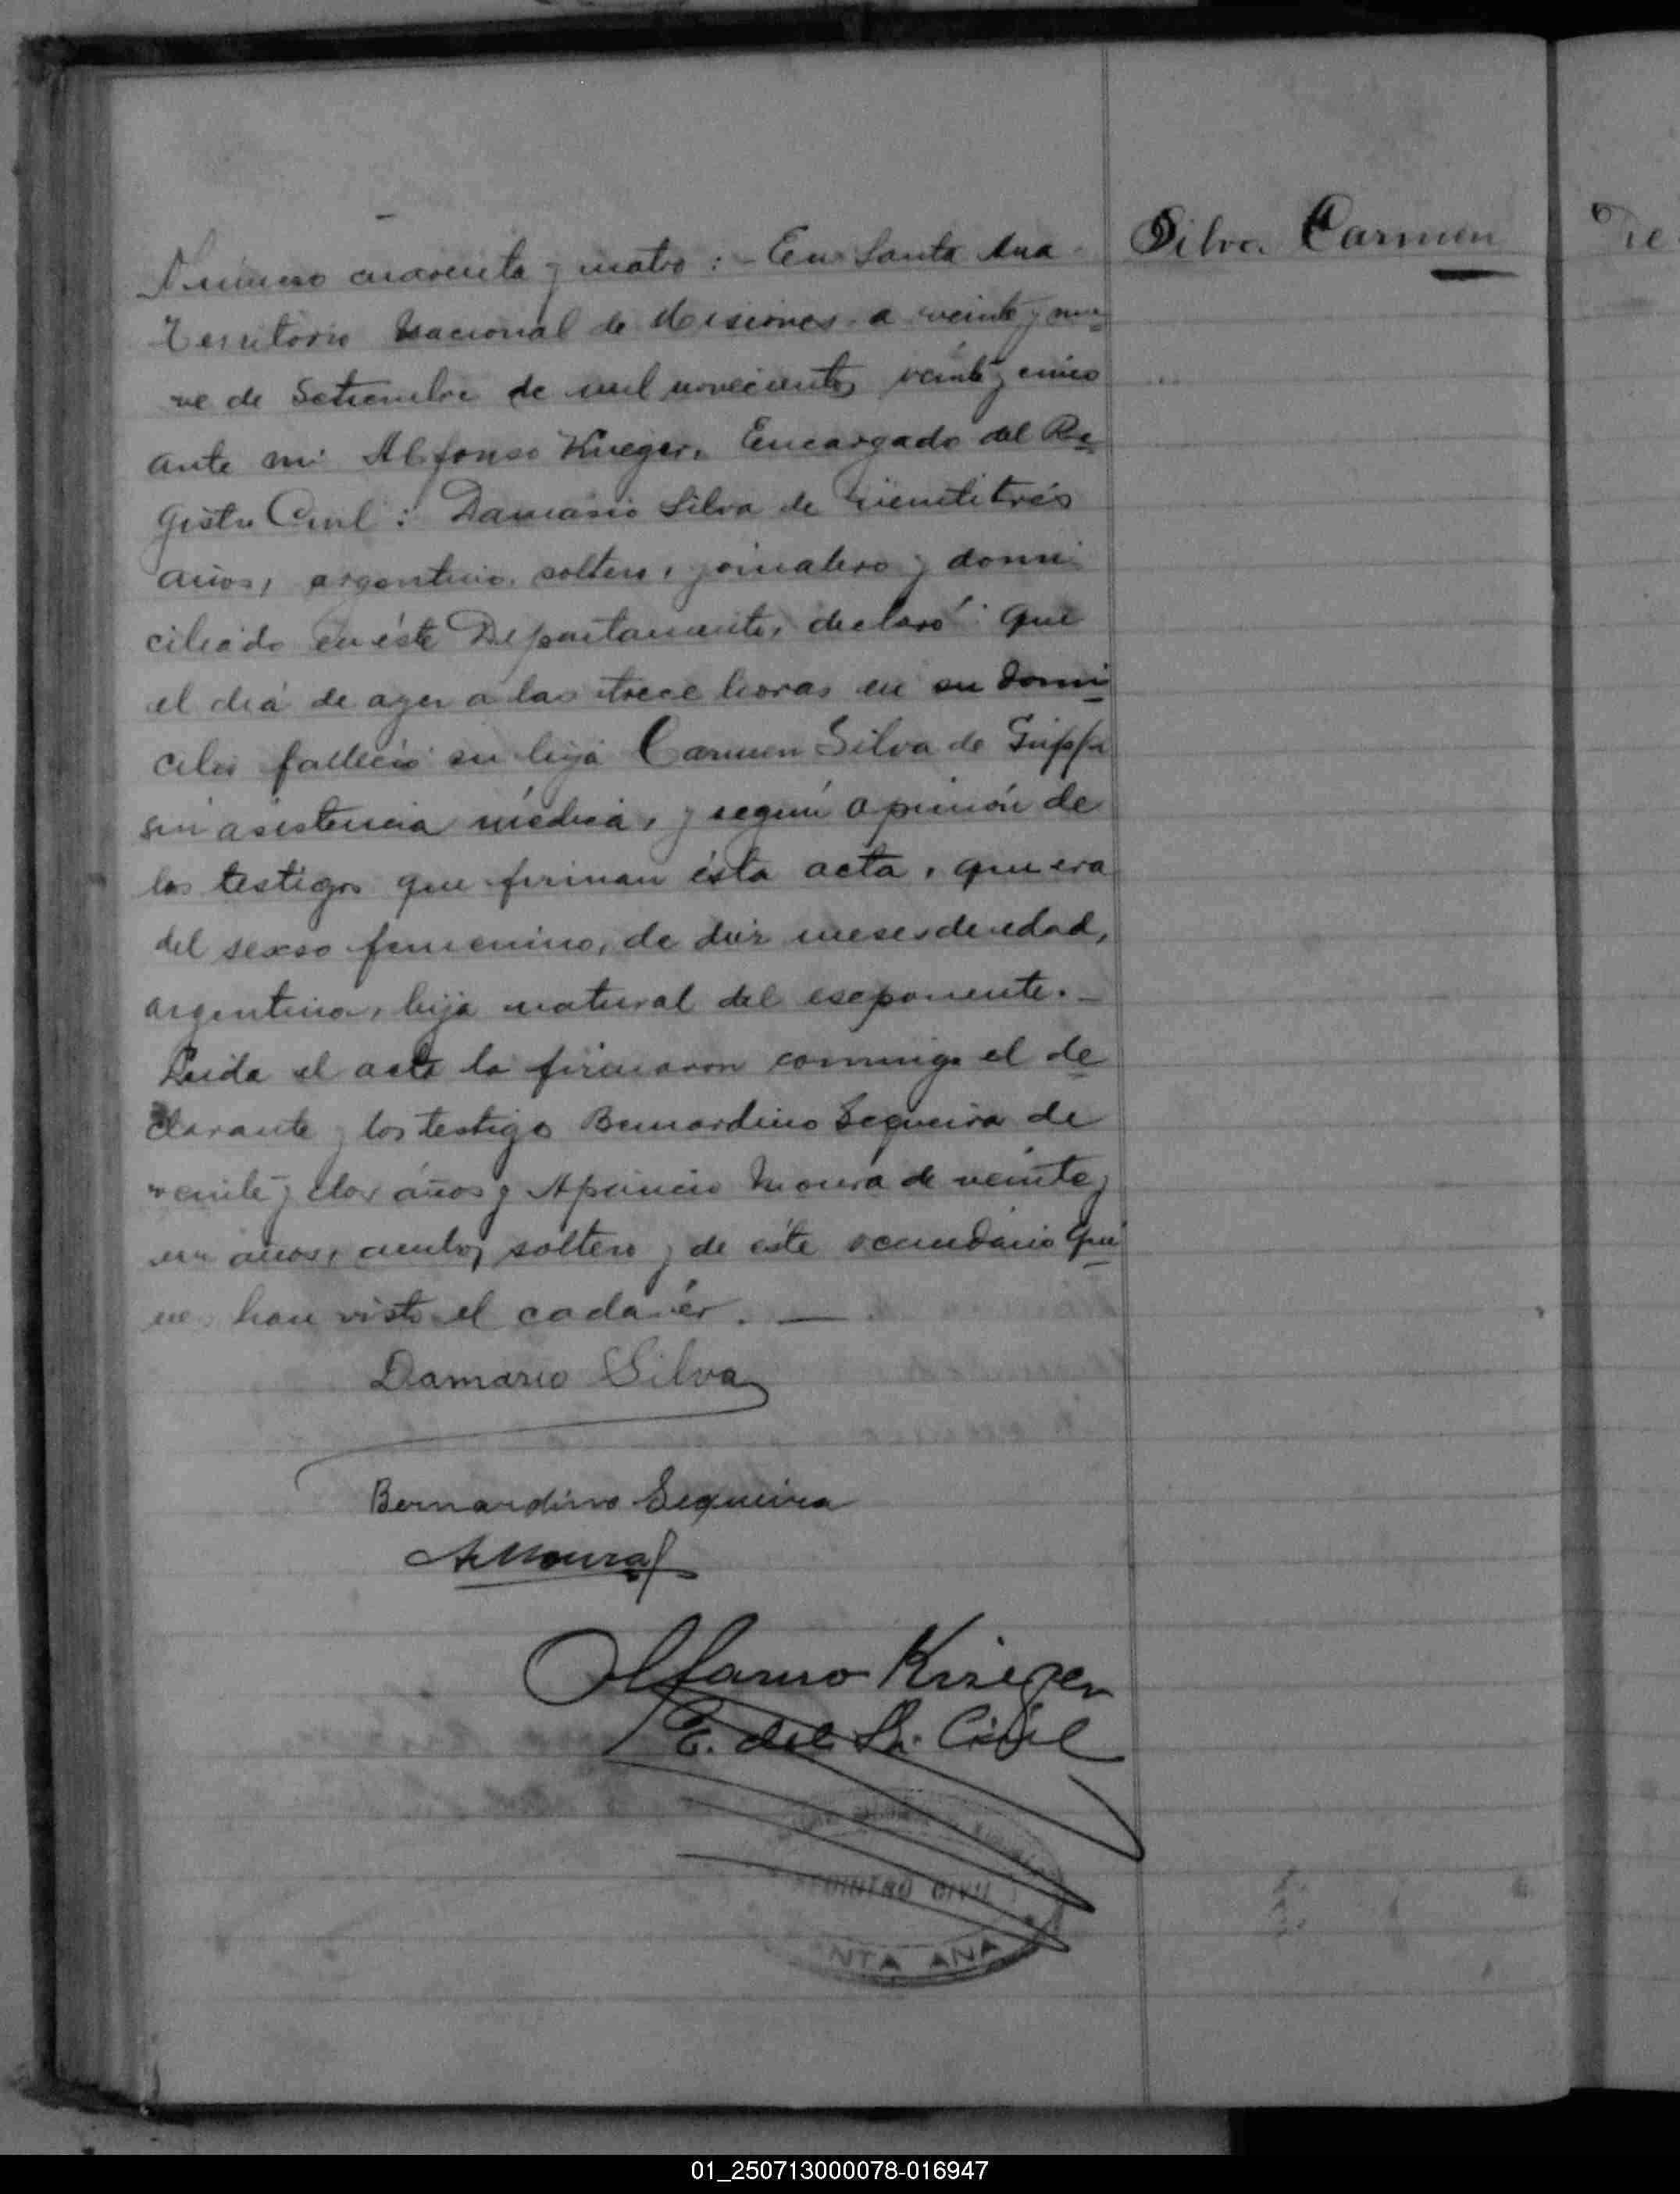 Silva Carmen
Número cuarenta y cuatro : - En Santa Ana
Territorio Nacional de Misiones a veinte y nue
ve de Setiembre de mil novecientos veinte y cinco
ante mi Alfonso Krieger, Encargado del Re
gistro Civil : Damasio Silva de vientitrés
años, argentino, soltero, jornalero y domi
ciliado en éste Departamento, declaró : que
el diá de ayer a las trece horas en su domi
cilio falleció su hija Carmen Silva de Grippe
sin asistencia médica, y según opinión de
los testigos que firman ésta acta, que era
del sexso femenino, de diez meses de edad,
argentina, hija natural del exsponente. -
Leida el acta la firmaron conmigo el de
clarante y los testigo Bernardino Sequeira de
veinte y dos años y Aparicio Moura de veinte y
un años, ambos soltero y de éste vecindario quie
nes han visto el cadavér. —
Damasio Silva
Bernardino Sequeira
A Moura
Alfonso Krieger
E. del R. Civil
REGISTRO CIVIL
SANTA ANA
01_250713000078-016947